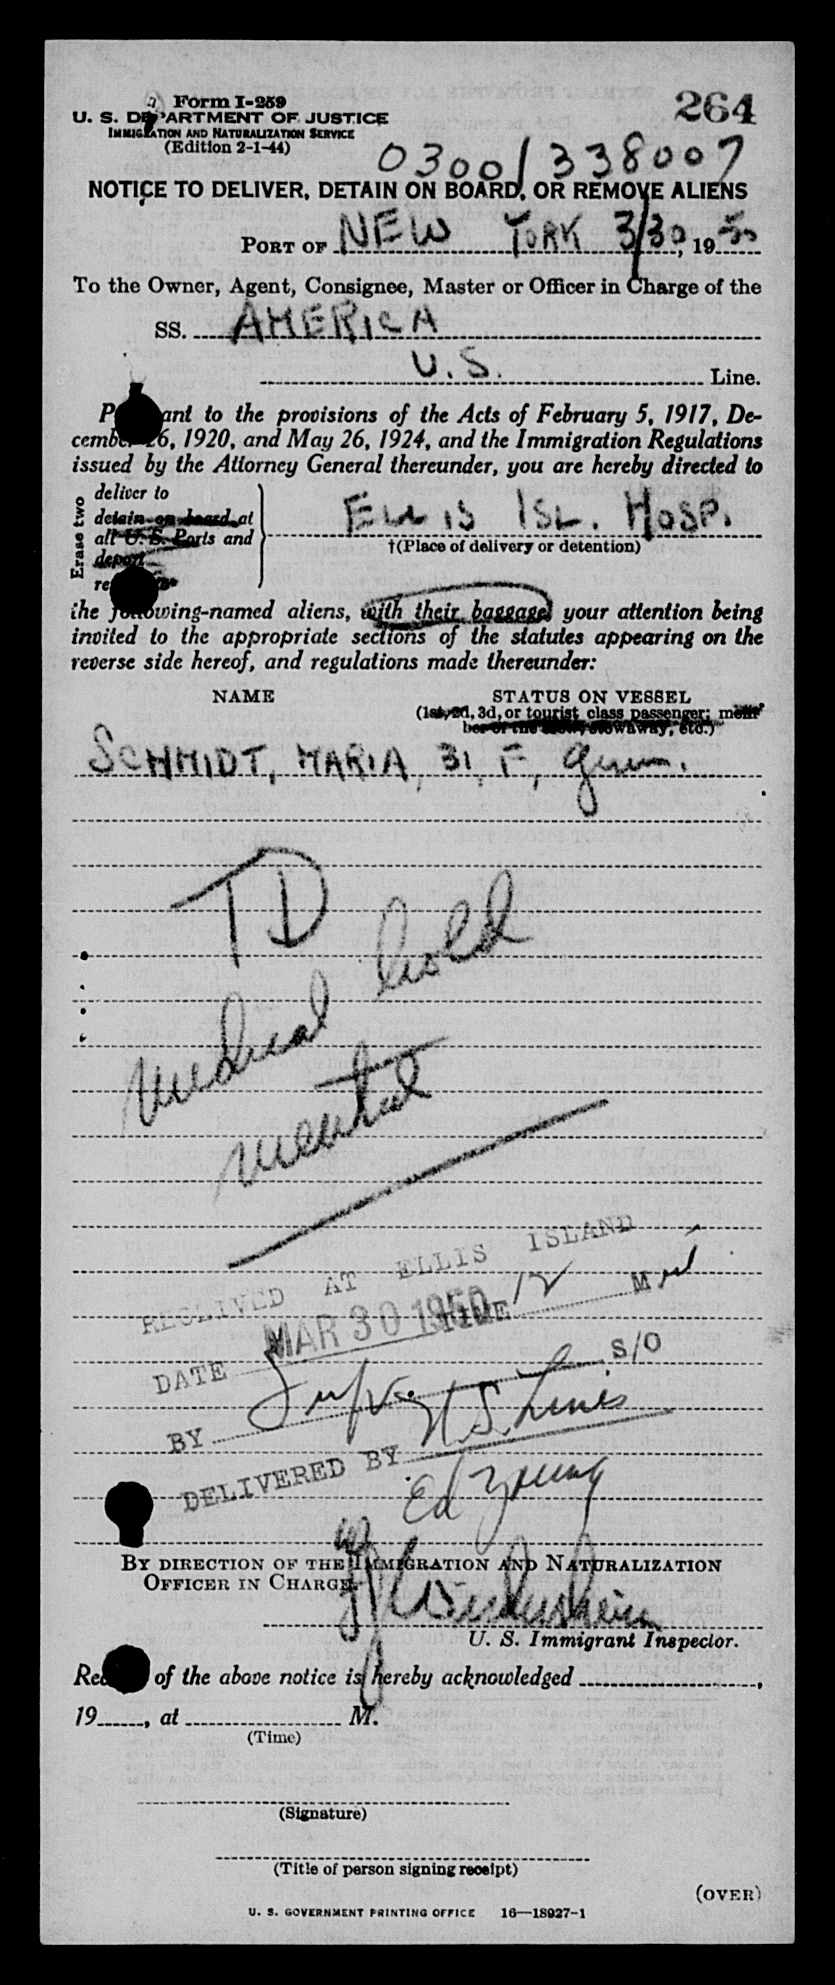 264
Form I-259
U. S. DEPARTMENT OF JUSTICE
IMMIGRATION AND NATURALIZATION SERVICE
(Edition 2-1-44)
0300/338007
NOTICE TO DELIVER, DETAIN ON BOARD, OR REMOVE ALIENS
PORT OF NEW YORK 3/30, 1950
To the Owner, Agent, Consignee, Master or Officer in Charge of the
SS. AMERICA
U.S. Line.
P ant to the provisions of the Acts of February 5, 1917, De-
cember 26, 1920, and May 26, 1924, and the Immigration Regulations
issued by the Attorney General thereunder, you are hereby directed to
Erase two
deliver to
detain on board at
all U. S. Ports and
deport
ELLIS ISL. HOSP.
†(Place of delivery or detention)
the following-named aliens, with their baggage, your attention being
invited to the appropriate sections of the statutes appearing on the
reverse side hereof, and regulations made thereunder:
NAME STATUS ON VESSEL
(1st, 2d, 3d, or tourist class passenger; mem-
ber of the crew, stowaway, etc.)
SCHMIDT, MARIA, 31, F, Germ.
TD
medical hold
mental
RECEIVED AT ELLIS ISLAND
DATE MAR 30 1950 TIME 12 M
S/O
BY
DELIVERED BY
Ed Young
BY DIRECTION OF THE IMMIGRATION AND NATURALIZATION
OFFICER IN CHARGE.
U. S. Immigrant Inspector.
of the above notice is hereby acknowledged ,
19 , at M.
(Time)
(Signature)
(Title of person signing receipt)
(OVER)
U. S. GOVERNMENT PRINTING OFFICE 16—18927-1